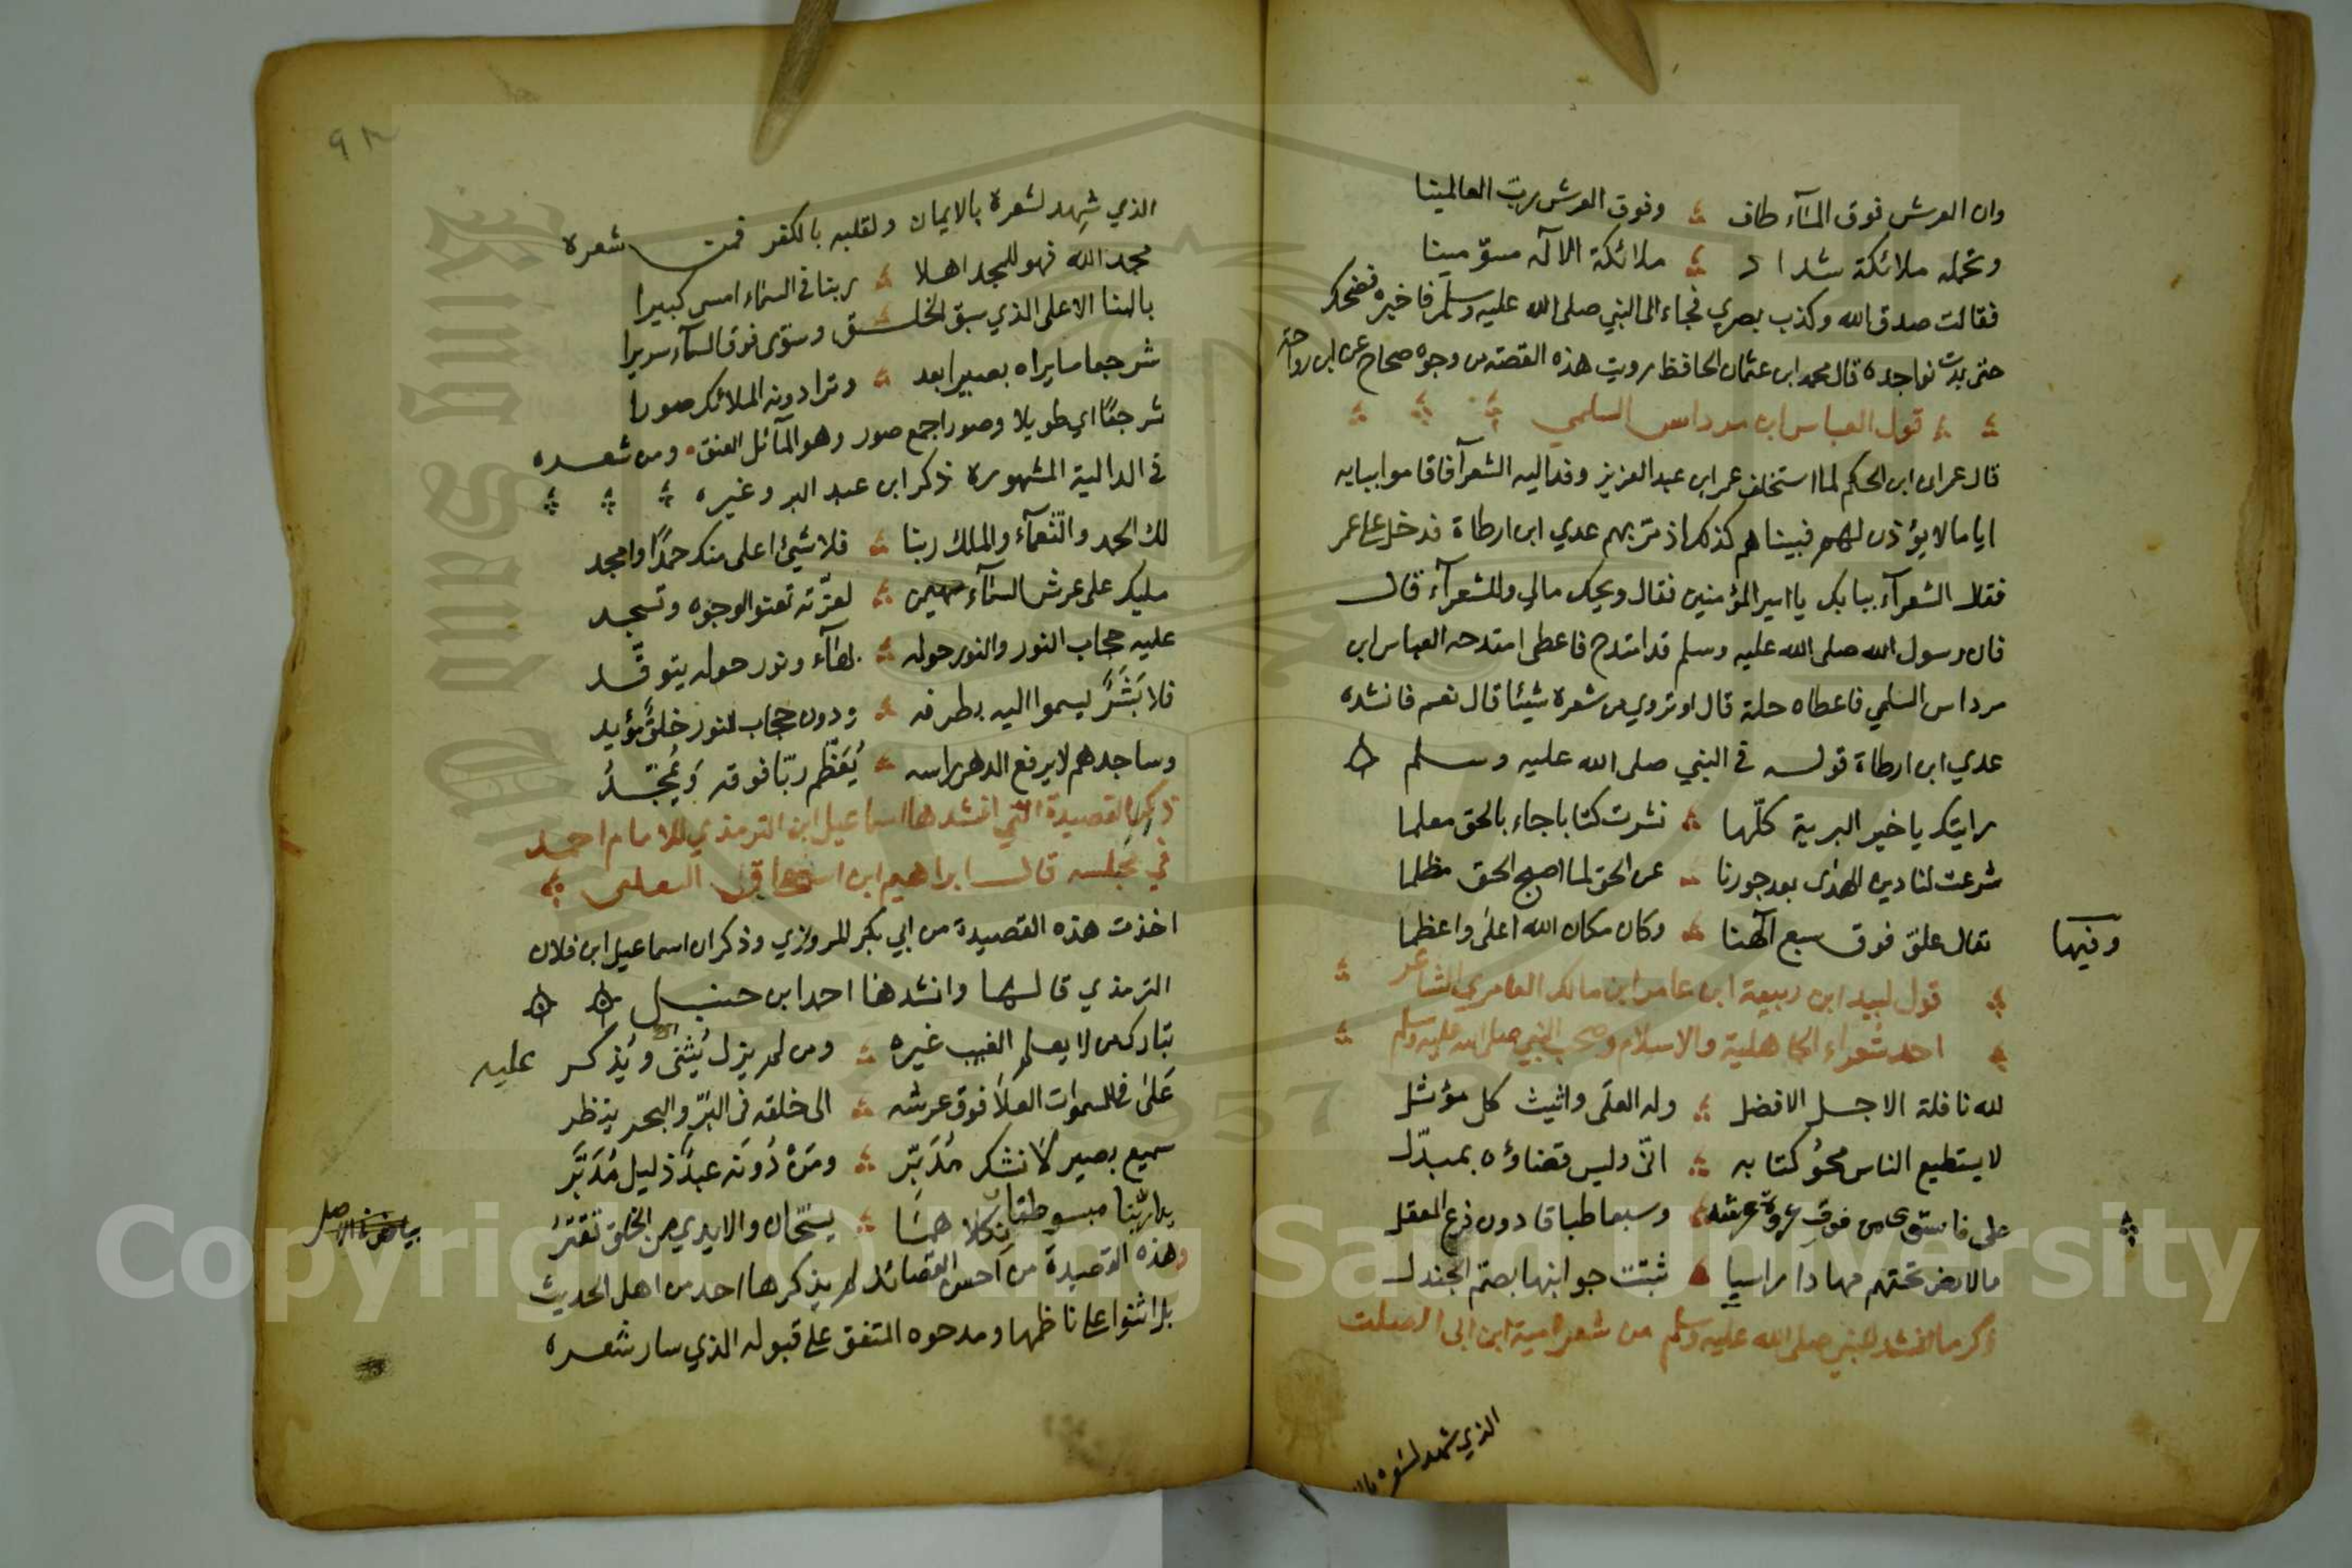 وان العرش فوق المآء طاف وفوق العرش رب العالمينا
وتحمله ملائكة شداد ملائكة الاله مسوّمينا
فقالت صدق الله وكذب بصري فجاء الى النبي صلى الله عليه وسلم فاخبره فضحك
حتى بدت نواجده قال محمد ابن عثمان الحافظ رويت هذه القصة من وجوه صحاح عن ابن رواحة
قول العباس ابن مرداس السلمي
قال عمران ابن الحكم لما استخلف عمر ابن عبد العزيز وفد اليه الشعرآ فاقاموا ببابه
اياما لا يؤذن لهم فبينا هم كذلك اذ مرّ بهم عدي ابن ارطاة فدخل على عمر
فقال الشعرآء ببابك يا امير المؤمنين فقال ويحك مالي وللشعرآء قال
فان رسول الله صلى الله عليه وسلم قد امتدح فاعطى امتدحه العباس ابن
مرداس السلمي فاعطاه حلة قال اوتروي من شعره شيئا قال نعم فانشده
عدي ابن ارطاة قوله في النبي صلى الله عليه وسلم
رايتك يا خير البرية كلّها نشرت كتابا جاء بالحق معلما
شرعت لنا دين الهدى بعد جورنا عن الحق لما اصبح الحق مظلما
وفيها
تعالى علوّ فوق سبع الٓهنا وكان مكان الله اعلى واعظما
قول لبيد ابن ربيعة ابن عامر ابن مالك العامري الشاعر
احد شعراء الجاهلية والاسلام وصحب النبي صلى الله عليه وسلم
لله نافلة الاجل الافضل وله العلى واثيث كل مؤثل
لا يستطيع الناس محو كتابه انّى وليس قضاؤه بمبدّل
على فاستوى من فوق عروة عرشه وسبعا طباقا دون فرع المعقل
مالارض تحتهم مهادا راسيا ثبتت جوانبها بصمّ الجندل
ذكر ما انشد للنبي صلى الله عليه وسلم من شعر امية ابن ابي الصلت
الذي شهد لشعره
٩٢
الذي شهد لشعره بالايمان ولقلبه بالكفر فمن شعره
مجد الله فهو للمجد اهلا ربنا في السماء امسى كبيرا
بالهنا الاعلى الذي سبق الخلق وسوّى فوق السمآء سريرا
شرجعا ما يراه بصيرا بعد وترا دونه الملائك صورا
شرجعًا اي طويلا وصورا جمع صور وهو المآئل العنق ومن شعره
في الدالية المشهورة ذكر ابن عبد البر وغيره
لك الحمد والنعمآء والملك ربنا فلا شيئ اعلى منك حمدًا وامجد
مليك على عرش السمآء مهيمن لعزّته تعنوا الوجوه وتسجد
عليه حجاب النور والنور حوله وانهآر نور حوله يتوقّد
فلا بَشَرٌ يسموا اليه بطرفه ودون حجاب النور خلقٌ مؤيد
وساجدهم لا يرفع الدهر راسه يُعَظِّم ربّا فوقه وَيُمَجِّدُ
ذكر القصيدة التي انشدها اسماعيل ابن الترمذي للامام احمد
في مجلسه قال ابراهيم ابن اسحاق البعلي
اخذت هذه القصيدة من ابي بكر المروزي وذكر ان اسماعيل ابن فلان
الترمذي قالها وانشدها احمد ابن حنبل
تبارك من لا يعلم الغيب غيره ومن لم يزل يُثنى عليه ويُذكر
عَلى في السموات العلا فوق عرشه الى خلقه في البرّ والبحر ينظر
سميع بصير لا نشك مُدَبِّر ومن دُونَه عبدٌ ذليل مُدَبَّر
يدا ربّنا مبسوطتان كلاهما يسحّان والايدي من الخلق تقترُ
بياض في الاصل
وهذه القصيدة من احسن القصائد لم يذكرها احد من اهل الحديث
بل اثنوا على ناظمها ومدحوه المتفق على قبوله الذي سار شعره
Copyright © King Saud University
King Saud University
1957